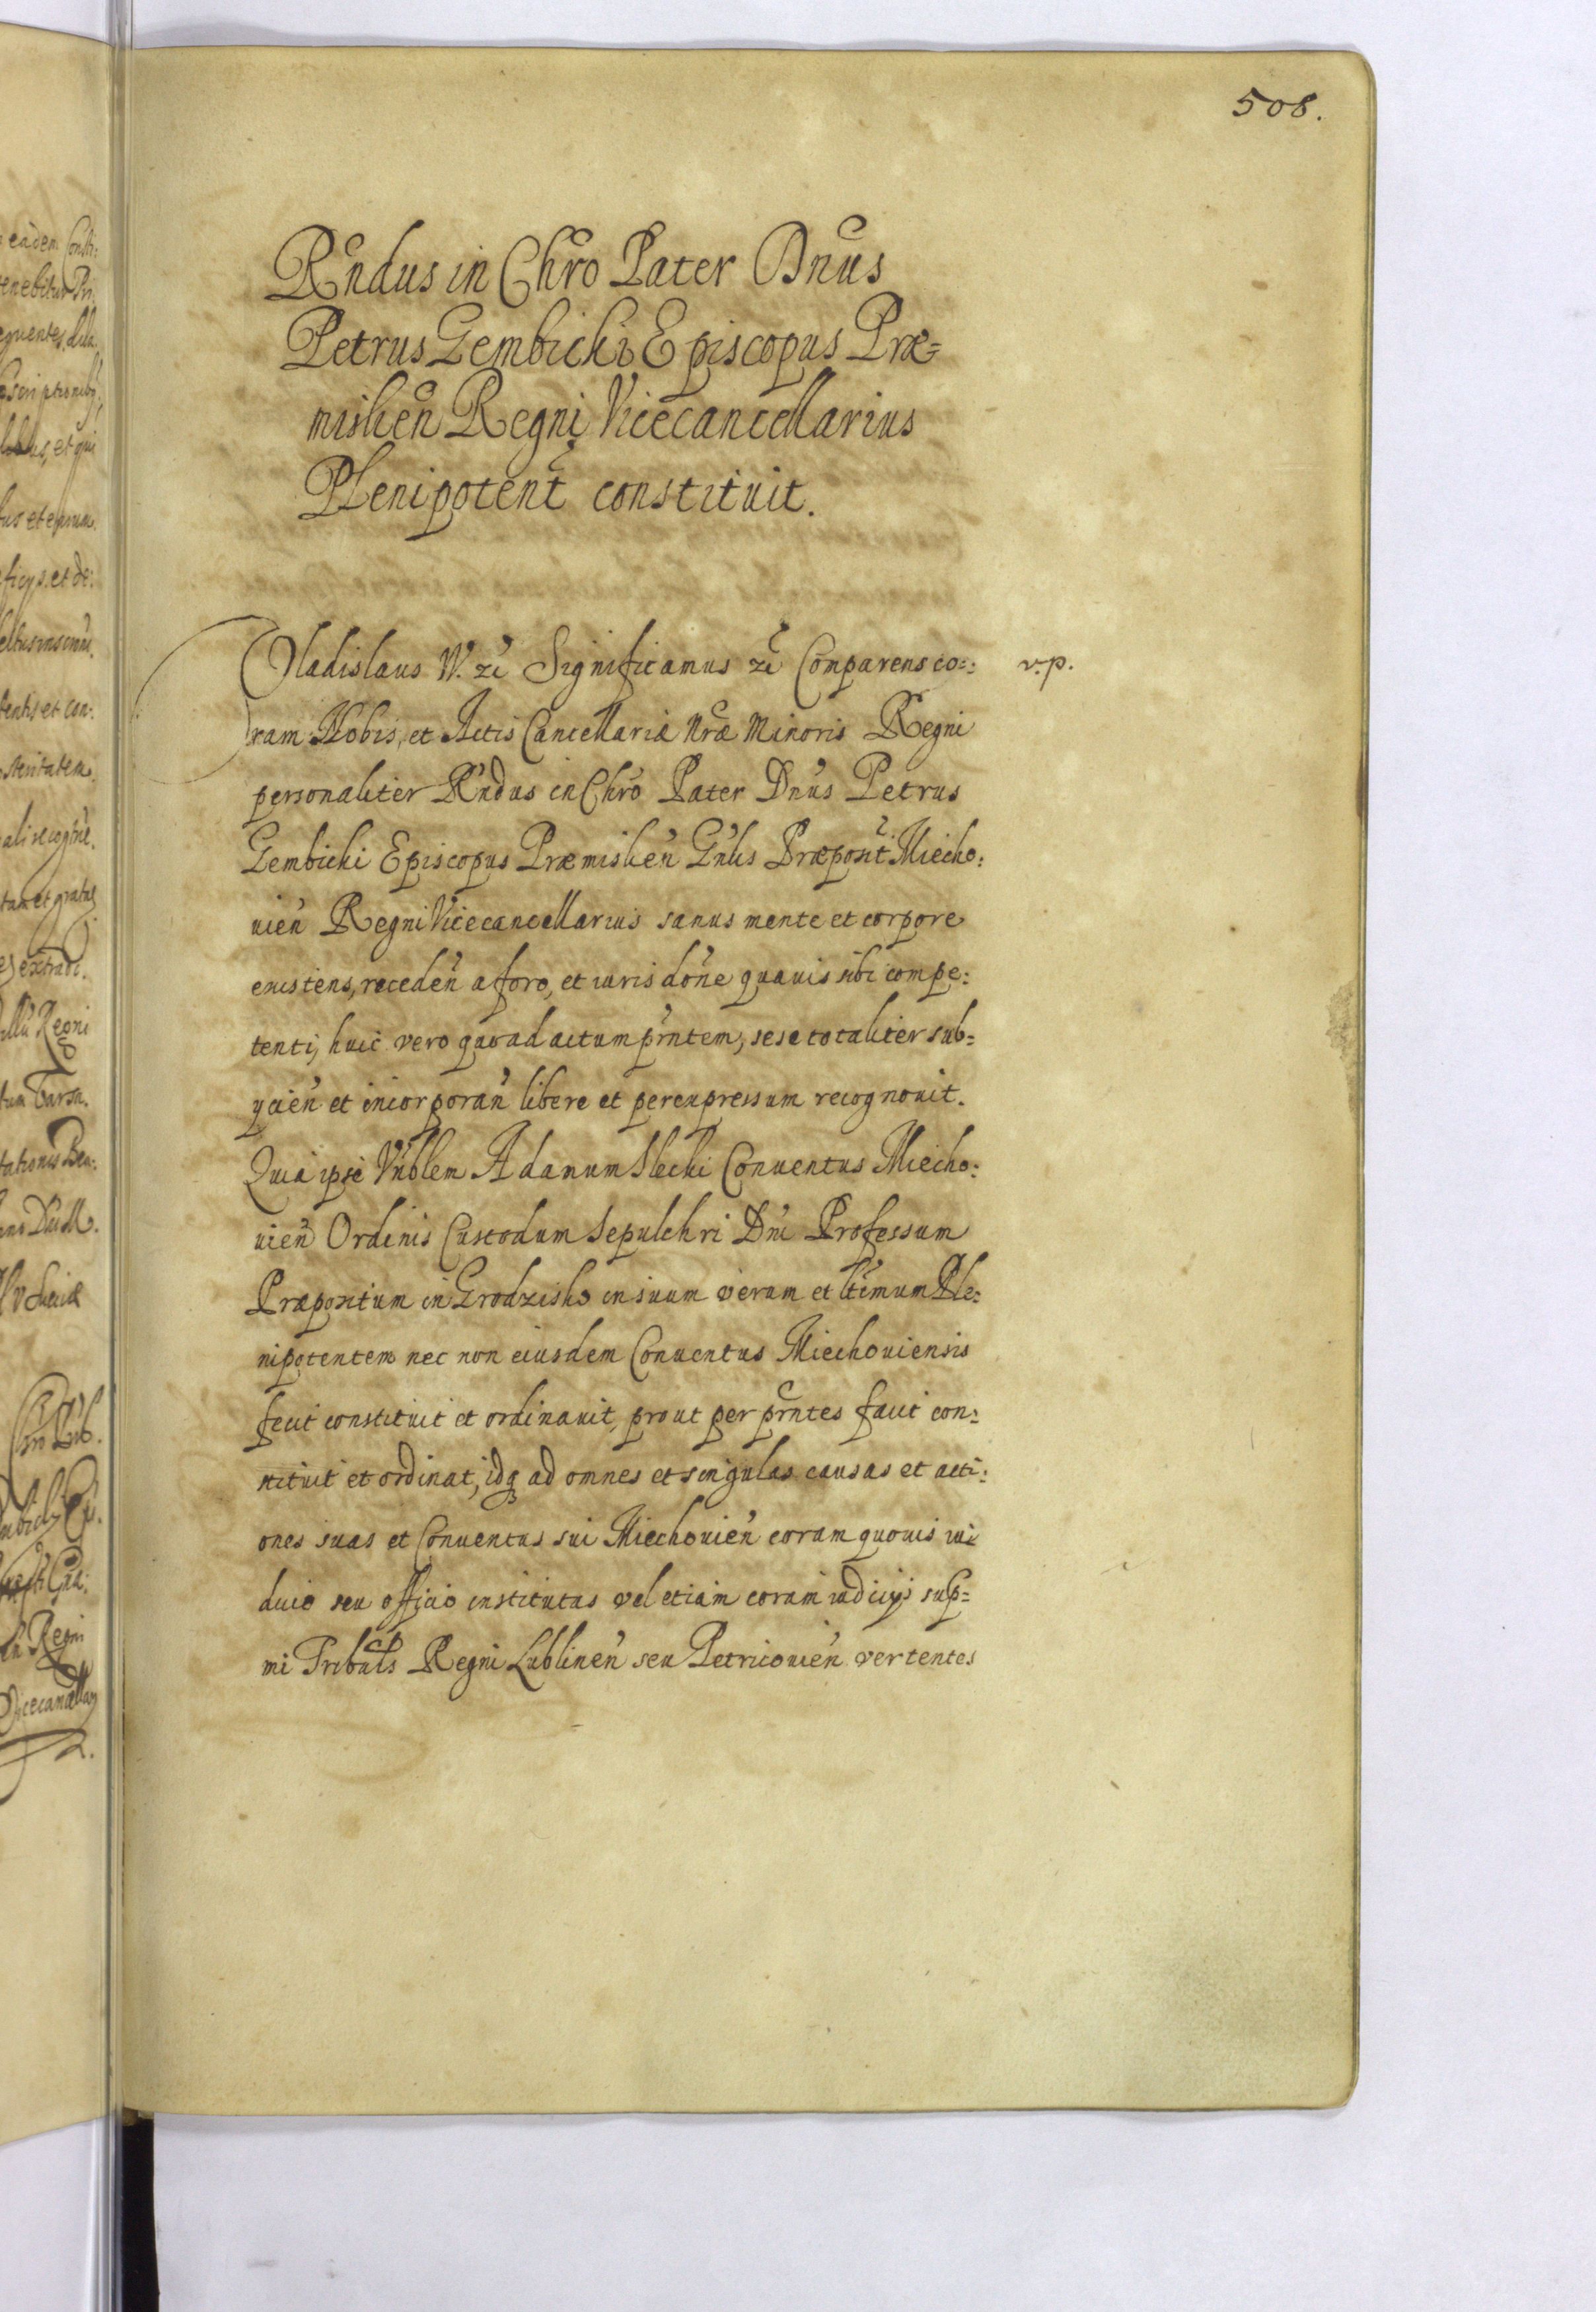 508.
Rndus in Chro Pater Dnus
Petrus Gembicki Episcopus Præ=
mislien Regni Vicecancellarius
Plenipotent constituit.
Vladislaus IV. &c Significamus &c Comparens co=: v.p.
ram Nobis, et Actis Cancellariæ Nræ Minoris Regni
personaliter Rndus in Chro Pater Dnus Petrus
Gembicki Episcopus Præmislien Gnlis Præposit Miecho:
uien Regni Vicecancellarius sanus mente et corpore
existens, receden a foro, et iurisdone quauis sibi compe:
tenti, huic vero quo ad actum prntem, sese totaliter sub=
ycien et incorporan libere et per expressum recognouit.
Quia ipse Vnblem Adamum Conuentus Miecho:
uien Ordinis Custodum Sepulchri Dni Professum
Præpositum in Grodzisko in suum verum et ltimum Ple:
nipotentem nec non eiusdem Conuentus Miechouiensis
fecit constituit et ordinauit, prout per prntes facit con:
stituit et ordinat, idq ad omnes et singulas causas et acti:
ones suas et Conuentus sui Miechouien coram quouis iu:
dicio seu officio institutas vel etiam coram iudicijs sup=
mi Tribnlis Regni Lublinen seu Petricouien vertentes